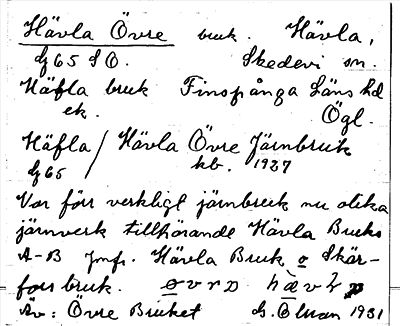 Hävla Övre bruk. Hävla,
G 65 SO. Skedevi sn.
Häfla bruk Finspånga Läns hd
ek. Ögl.
Häfla / Hävla Övre Järnbruk
G 65 kb. 1927
Var förr verkligt järnbruk nu olika
järnverk tillhörande Hävla Bruks
A-B Jmfr. Hävla Bruk o Skär-
fors bruk.
Äv: Övre Bruket G. Olsson 1931